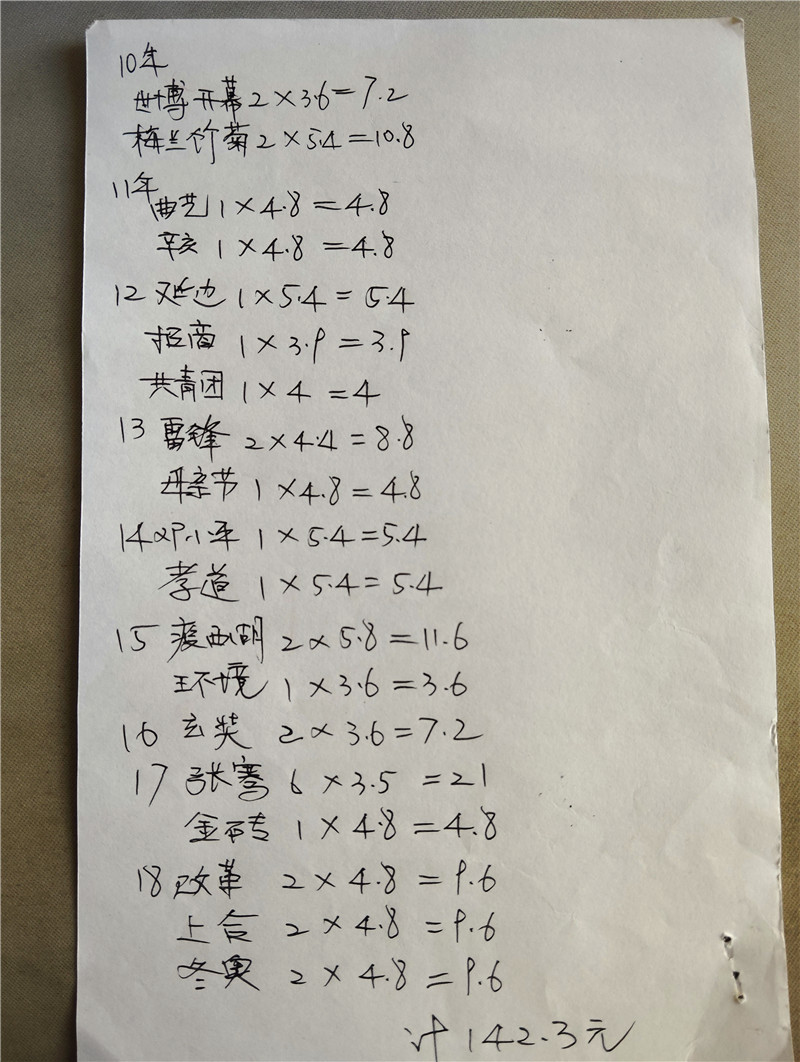 10年
世博开幕2×3.6=7.2
梅兰竹菊2×5.4=10.8
11年
曲艺1×4.8=4.8
辛亥1×4.8=4.8
12延边1×5.4=5.4
招商1×3.9=3.9
共青团1×4=4
13雷锋2×4.4=8.8
母亲节1×4.8=4.8
14邓小平1×5.4=5.4
孝道1×5.4=5.4
15瘦西湖2×5.8=11.6
环境1×3.6=3.6
16玄奘2×3.6=7.2
17张骞6×3.5=21
金砖1×4.8=4.8
18改革2×4.8=9.6
上合2×4.8=9.6
冬奥2×4.8=9.6
计142.3元